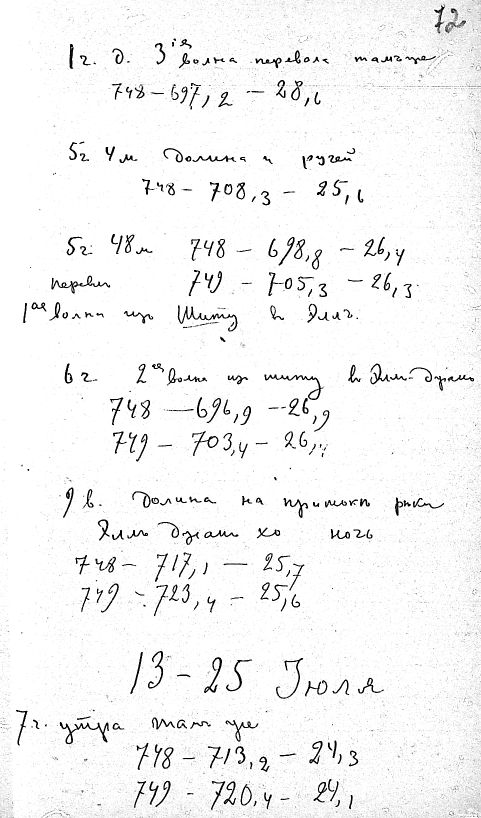 72
1 ч. д. 3ая волна перевала там же
748 – 697,2 – 28,6
5 ч 4 м Долина и ручей
748 – 708,3 – 25,6
5 ч 48 м 748 – 698,8 – 26,4
перевал 749 – 705,3 – 26,3
1ая волна из Шиту в Элл.
6 ч. 2ая волна из шиту в Элл-
748 – 696,9 – 26,9
749 – 703,4 – 26,
9 в. Долина на притокѣ рѣки
хо ночь
748 – 717,1 – 25,7
749 – 723,4 – 25,6
13 – 25 Iюля
7 ч. утра там же
748 – 713,2 – 24,3
749 – 720,4 – 24,1